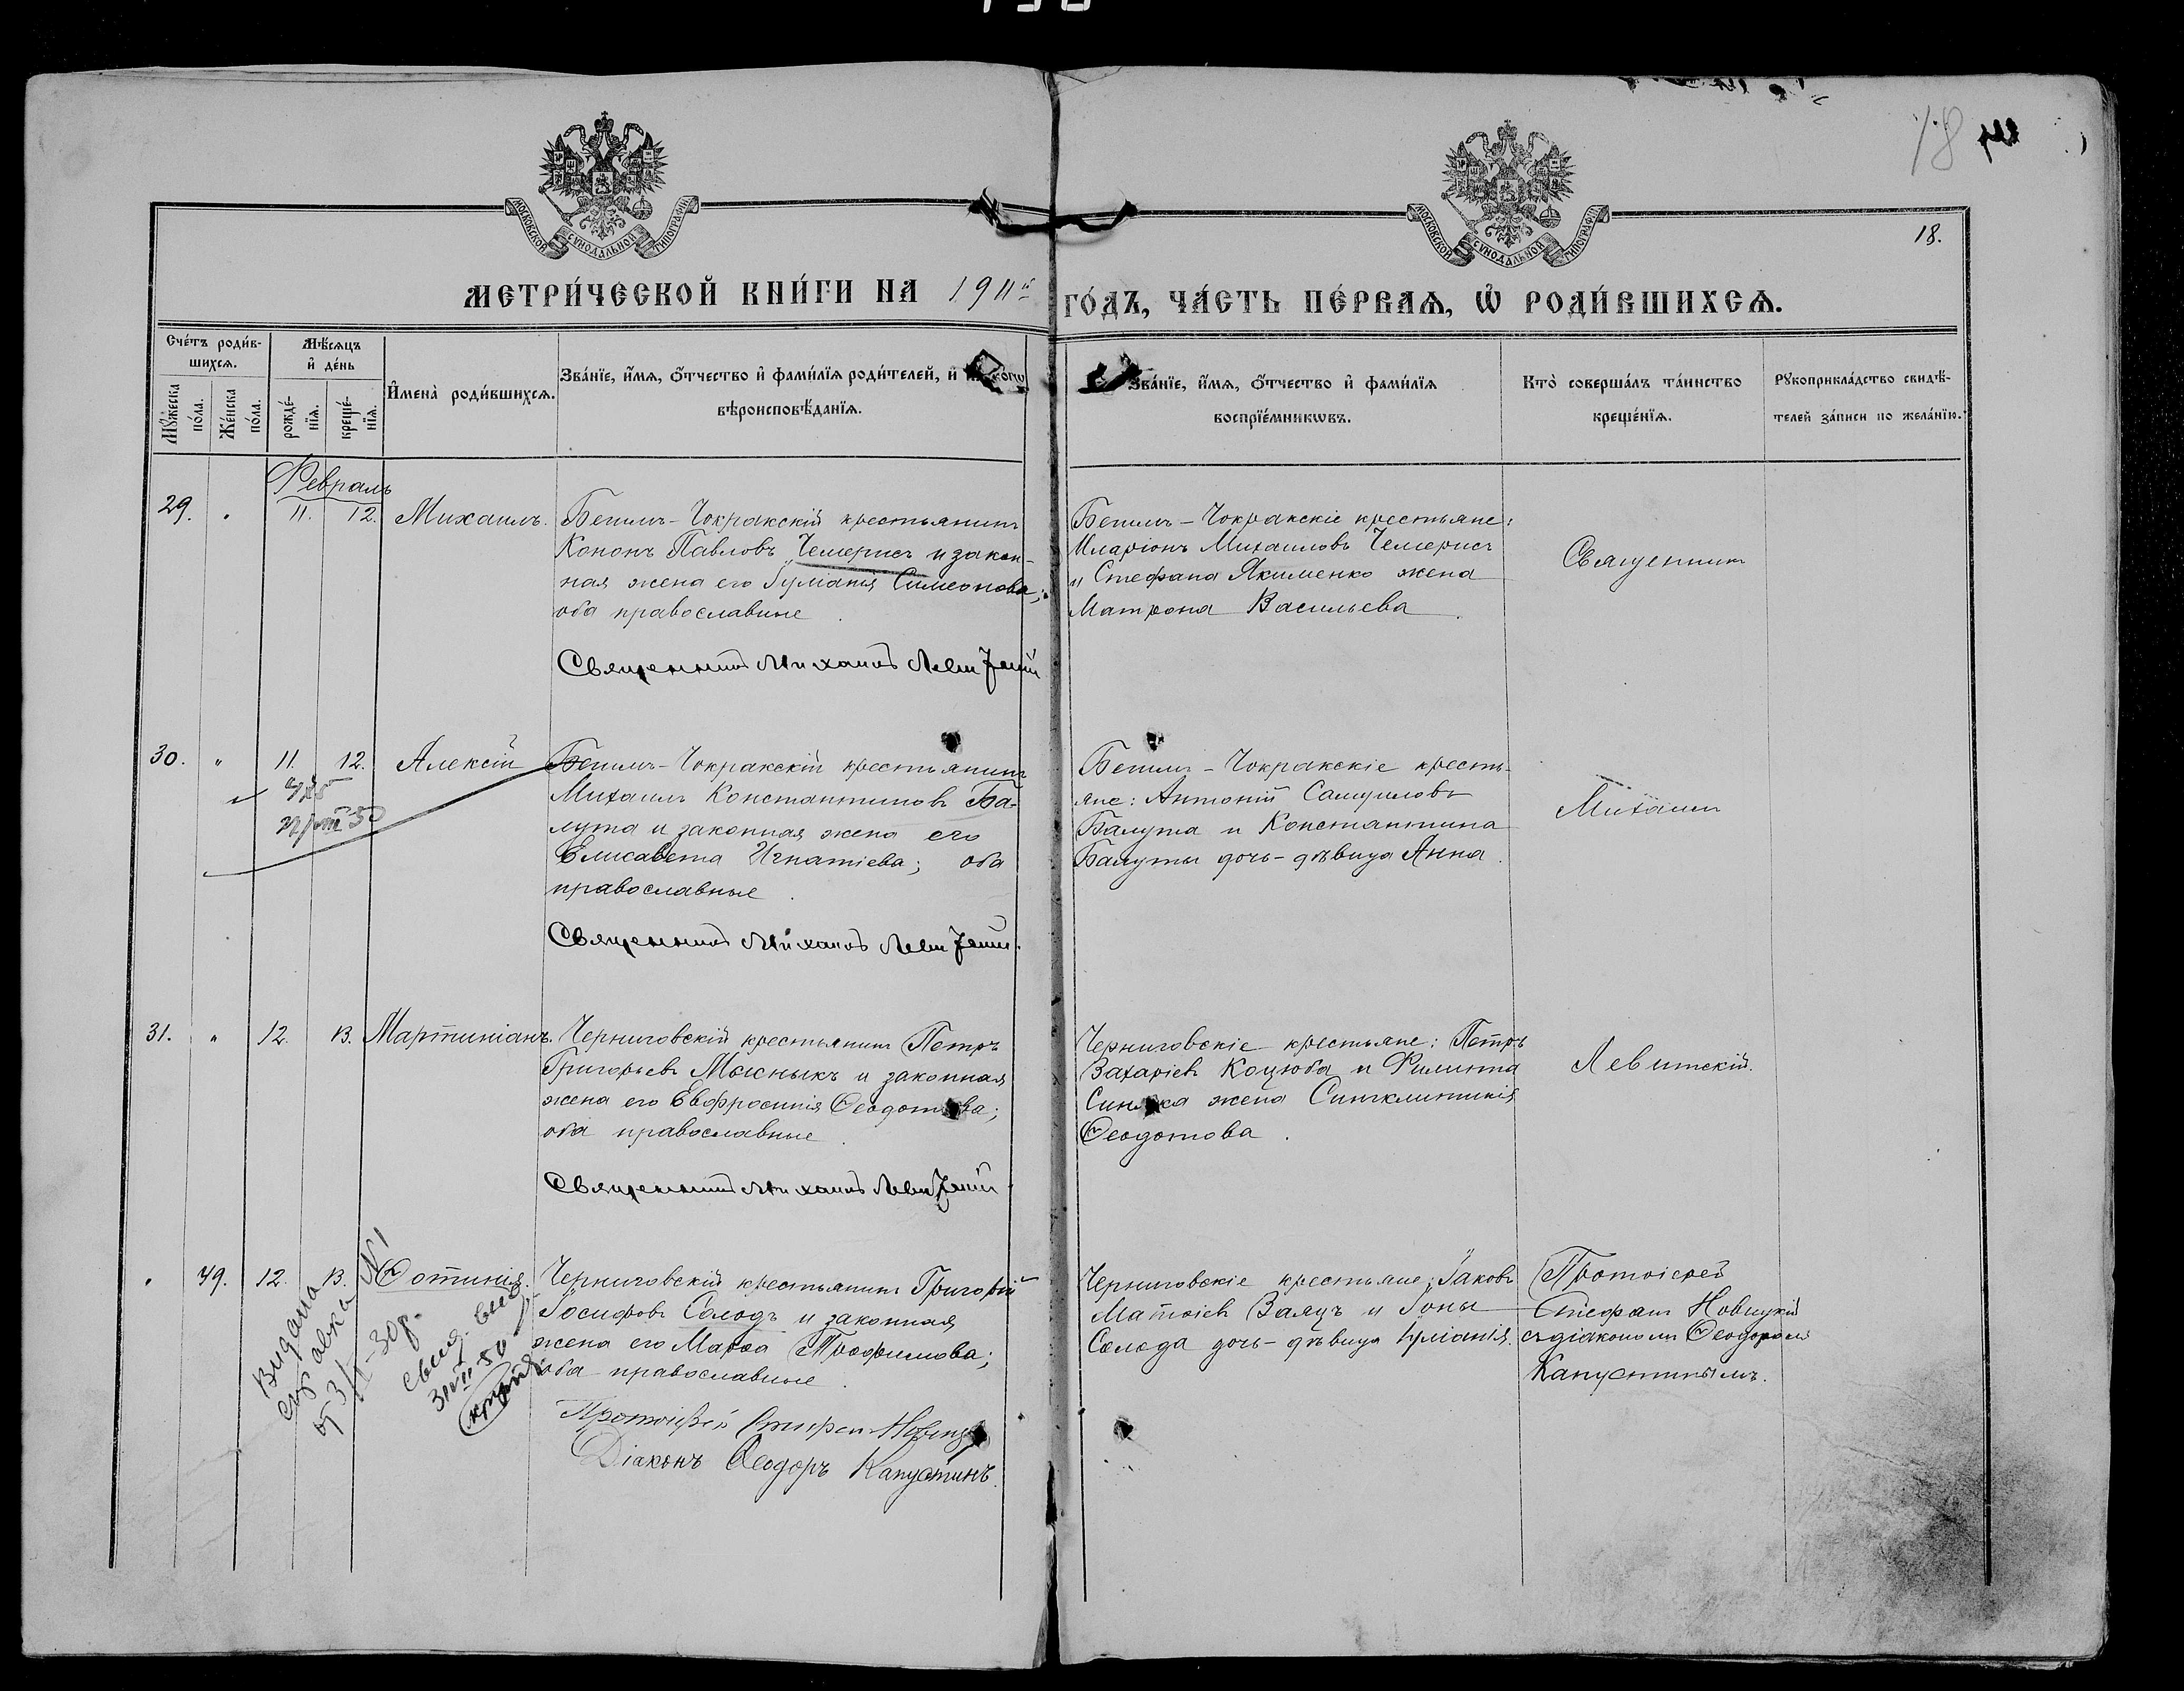 18
18.
МОСКОВСКОЙ СѴНОДАЛЬНОЙ ТИПОГРАФІИ
МОСКОВСКОЙ СѴНОДАЛЬНОЙ ТИПОГРАФІИ
МЕТРИ́ЧЕСКОЙ КНИ́ГИ НА 1911й ГО́ДЪ, ЧА́СТЬ ПЕ́РВАѦ, Ѡ҆ РОДИ́ВШИХСѦ.
Сче́тъ роди́в-
шихсѧ.
Мꙋ́жеска по́ла.
Же́нска по́ла.
Мѣ́сѧцъ и҆ де́нь
рожде́-нїѧ.
креще́-нїѧ.
И҆мена̀ роди́вшихсѧ.
Зва́нїе, и҆́мѧ, ѻ҆́тчество и҆ фами́лїѧ роди́телей, и҆
вѣроисповѣ́данїѧ.
Зва́нїе, и҆́мѧ, ѻ҆́тчество и҆ фами́лїѧ
воспрїе́мникѡвъ.
Кто̀ соверша́лъ та́инство
креще́нїѧ.
Рꙋкоприкла́дство свидѣ́-
телей за́писи по жела́нїю.
Февраль
29. " 11. 12. Михаилъ.
Бешлъ-Чокракскій крестьянинъ
Кононъ Павловъ Чемерисъ и закон-
ная жена его Іуліанія Симеонова;
оба православные.
Священникъ Михаилъ Левитскій
Бешлъ-Чокракскіе крестьяне:
Иларіонъ Михаиловъ Чемерисъ
и Стефана Якименко жена
Матрона Васильева.
Священникъ
30. " 11. 12. Алексій
Бешлъ-Чокракскій крестьянинъ
Михаилъ Константиновъ Ба-
лута и законная жена его
Елисавета Игнатіева; оба
православные.
Священникъ Михаилъ Левитскій.
Бешлъ-Чокракскіе кресть-
яне: Антоній Самуиловъ
Балута и Константина
Балуты дочь-дѣвица Анна.
Михаилъ
31. " 12. 13. Мартиніанъ.
Черниговскій крестьянинъ Петръ
Григорьевъ Мясныкъ и законная
жена его Евфросинія Ѳеодотова;
оба православные.
Священникъ Михаилъ Левитскій
Черниговскіе крестьяне: Петръ
Захаріевъ Коцюба и Филиппа
жена Синклитикія
Ѳеодотова.
Левитскій.
" 49. 12. 13. Ѳотинія.
Черниговскій крестьянинъ Григорій
Іосифовъ Солодъ и законная
жена его Марѳа Трофимова;
оба православные.
Протоіерей Стефанъ Новицкій
Діаконъ Ѳеодоръ Капустинъ.
Черниговскіе крестьяне: Іаковъ
Матѳіевъ Заяцъ и Іоны
Солода дочь-дѣвица Іуліанія.
Протоіерей
Стефанъ Новицкій
съ діакономъ Ѳеодоромъ
Капустинымъ.
Видана
справка №1